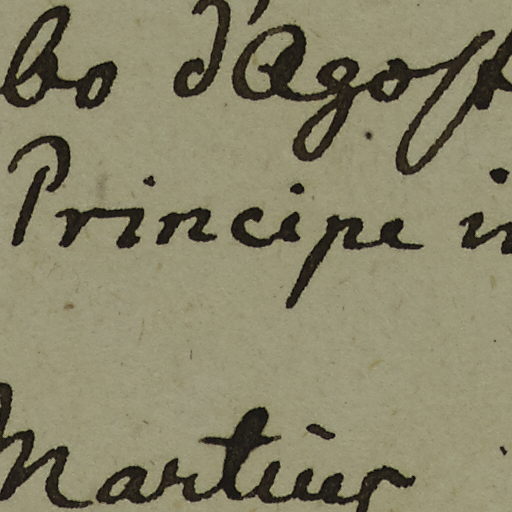 bo d'Agost
Principe in
Martius